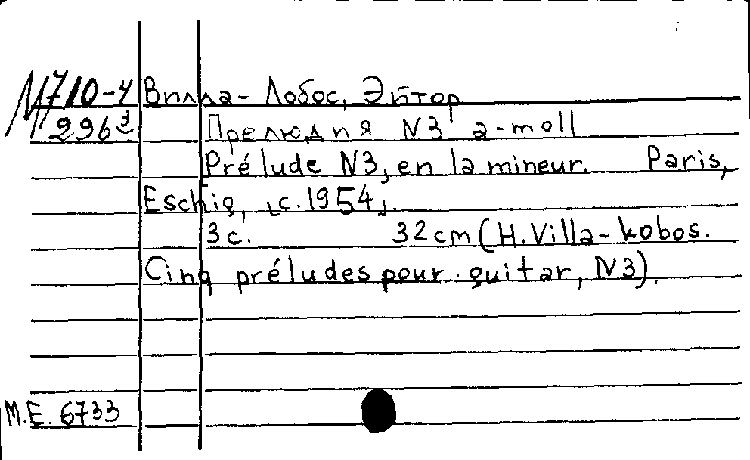 М710-4 Вилла-Лобос, Эйтор
2963 Прелюдия N3 a-moll
Prélude N3, en la mineur. Paris,
Eschig, [c. 1954].
3 с. 32 cm (H. Villa-Lobos.
Cinq préludes pour guitar, N3).
M.E. 6733